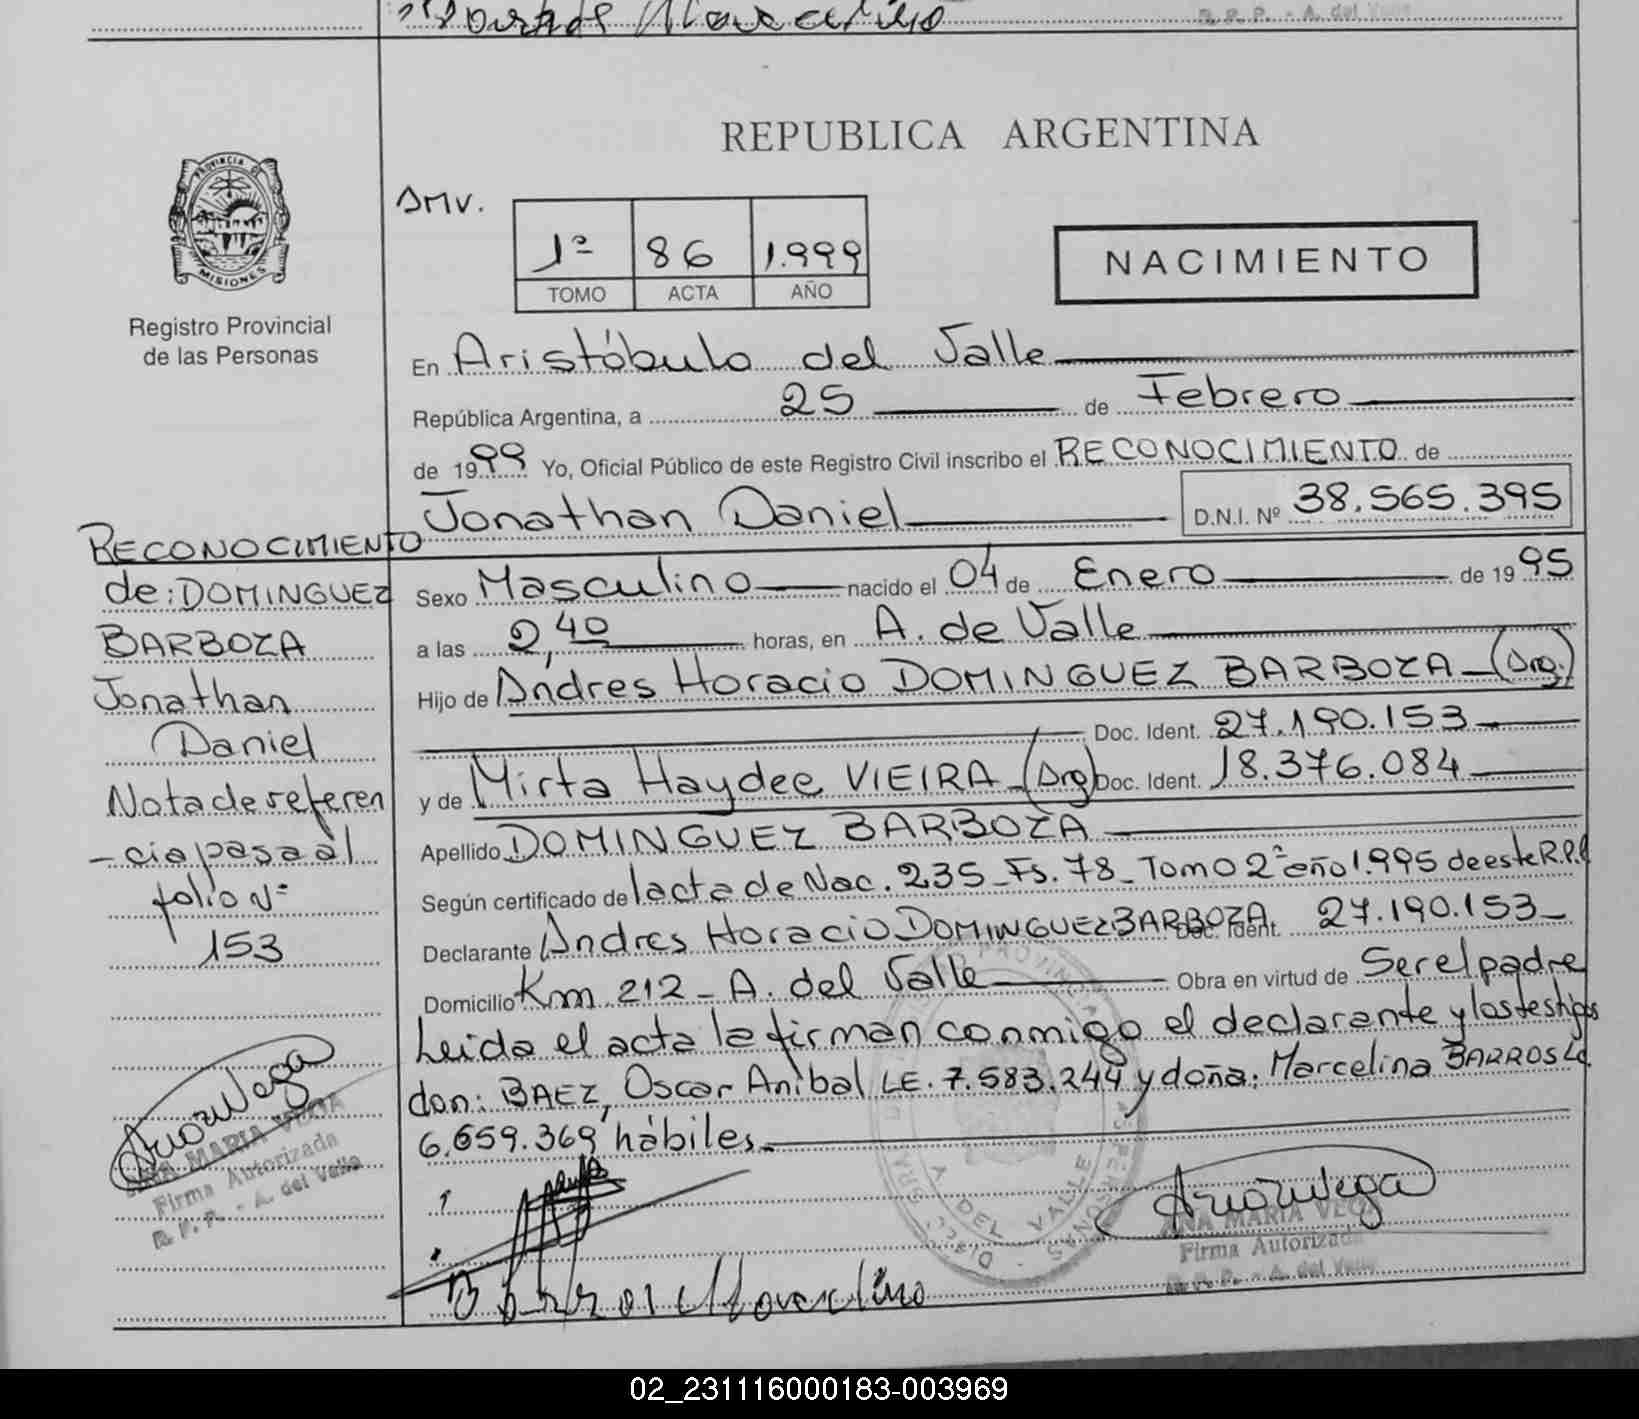 R.P.P. - A. del Valle
REPUBLICA ARGENTINA
PROVINCIA DE
MISIONES
Registro Provincial
de las Personas
SMV.
1ª 86 1.999
TOMO ACTA AÑO
NACIMIENTO
En Aristóbulo del Valle
República Argentina, a 25 de Febrero
de 1999 Yo, Oficial Público de este Registro Civil inscribo el RECONOCIMIENTO de
Jonathan Daniel D.N.I. Nº 38.565.395
RECONOCIMIENTO
de: DOMINGUEZ
BARBOZA
Jonathan
Daniel
Nota de referen
-cia pasa al
folio Nº
153
Sexo Masculino nacido el 04 de Enero de 1995
a las 2,40 horas, en A. de Valle
Hijo de Andres Horacio DOMINGUEZ BARBOZA - (Arg.)
Doc. Ident. 27.190.153
y de Mirta Haydee VIEIRA - (Arg) Doc. Ident. 18.376.084
Apellido DOMINGUEZ BARBOZA
Según certificado de 1 acta de Nac. 235 - Fs. 78 - Tomo 2º año 1.995 de este R.P.P
Declarante Andres Horacio DOMINGUEZ BARBOZA Doc. Ident. 27.190.153
Domicilio Km 212 - A. del Valle Obra en virtud de Ser el padre
Leida el acta la firman conmigo el declarante y los testigos
don: BAEZ, Oscar Anibal LE. 7.583.244 y doña: Marcelina BARROS Lc.
6.659.369 hábiles.
ANA MARIA VEGA
Firma Autorizada
R.P.P. - A. del Valle
A. DEL VALLE
ANA MARIA VEGA
Firma Autorizada
R.P.P. - A. del Valle
02_231116000183-003969